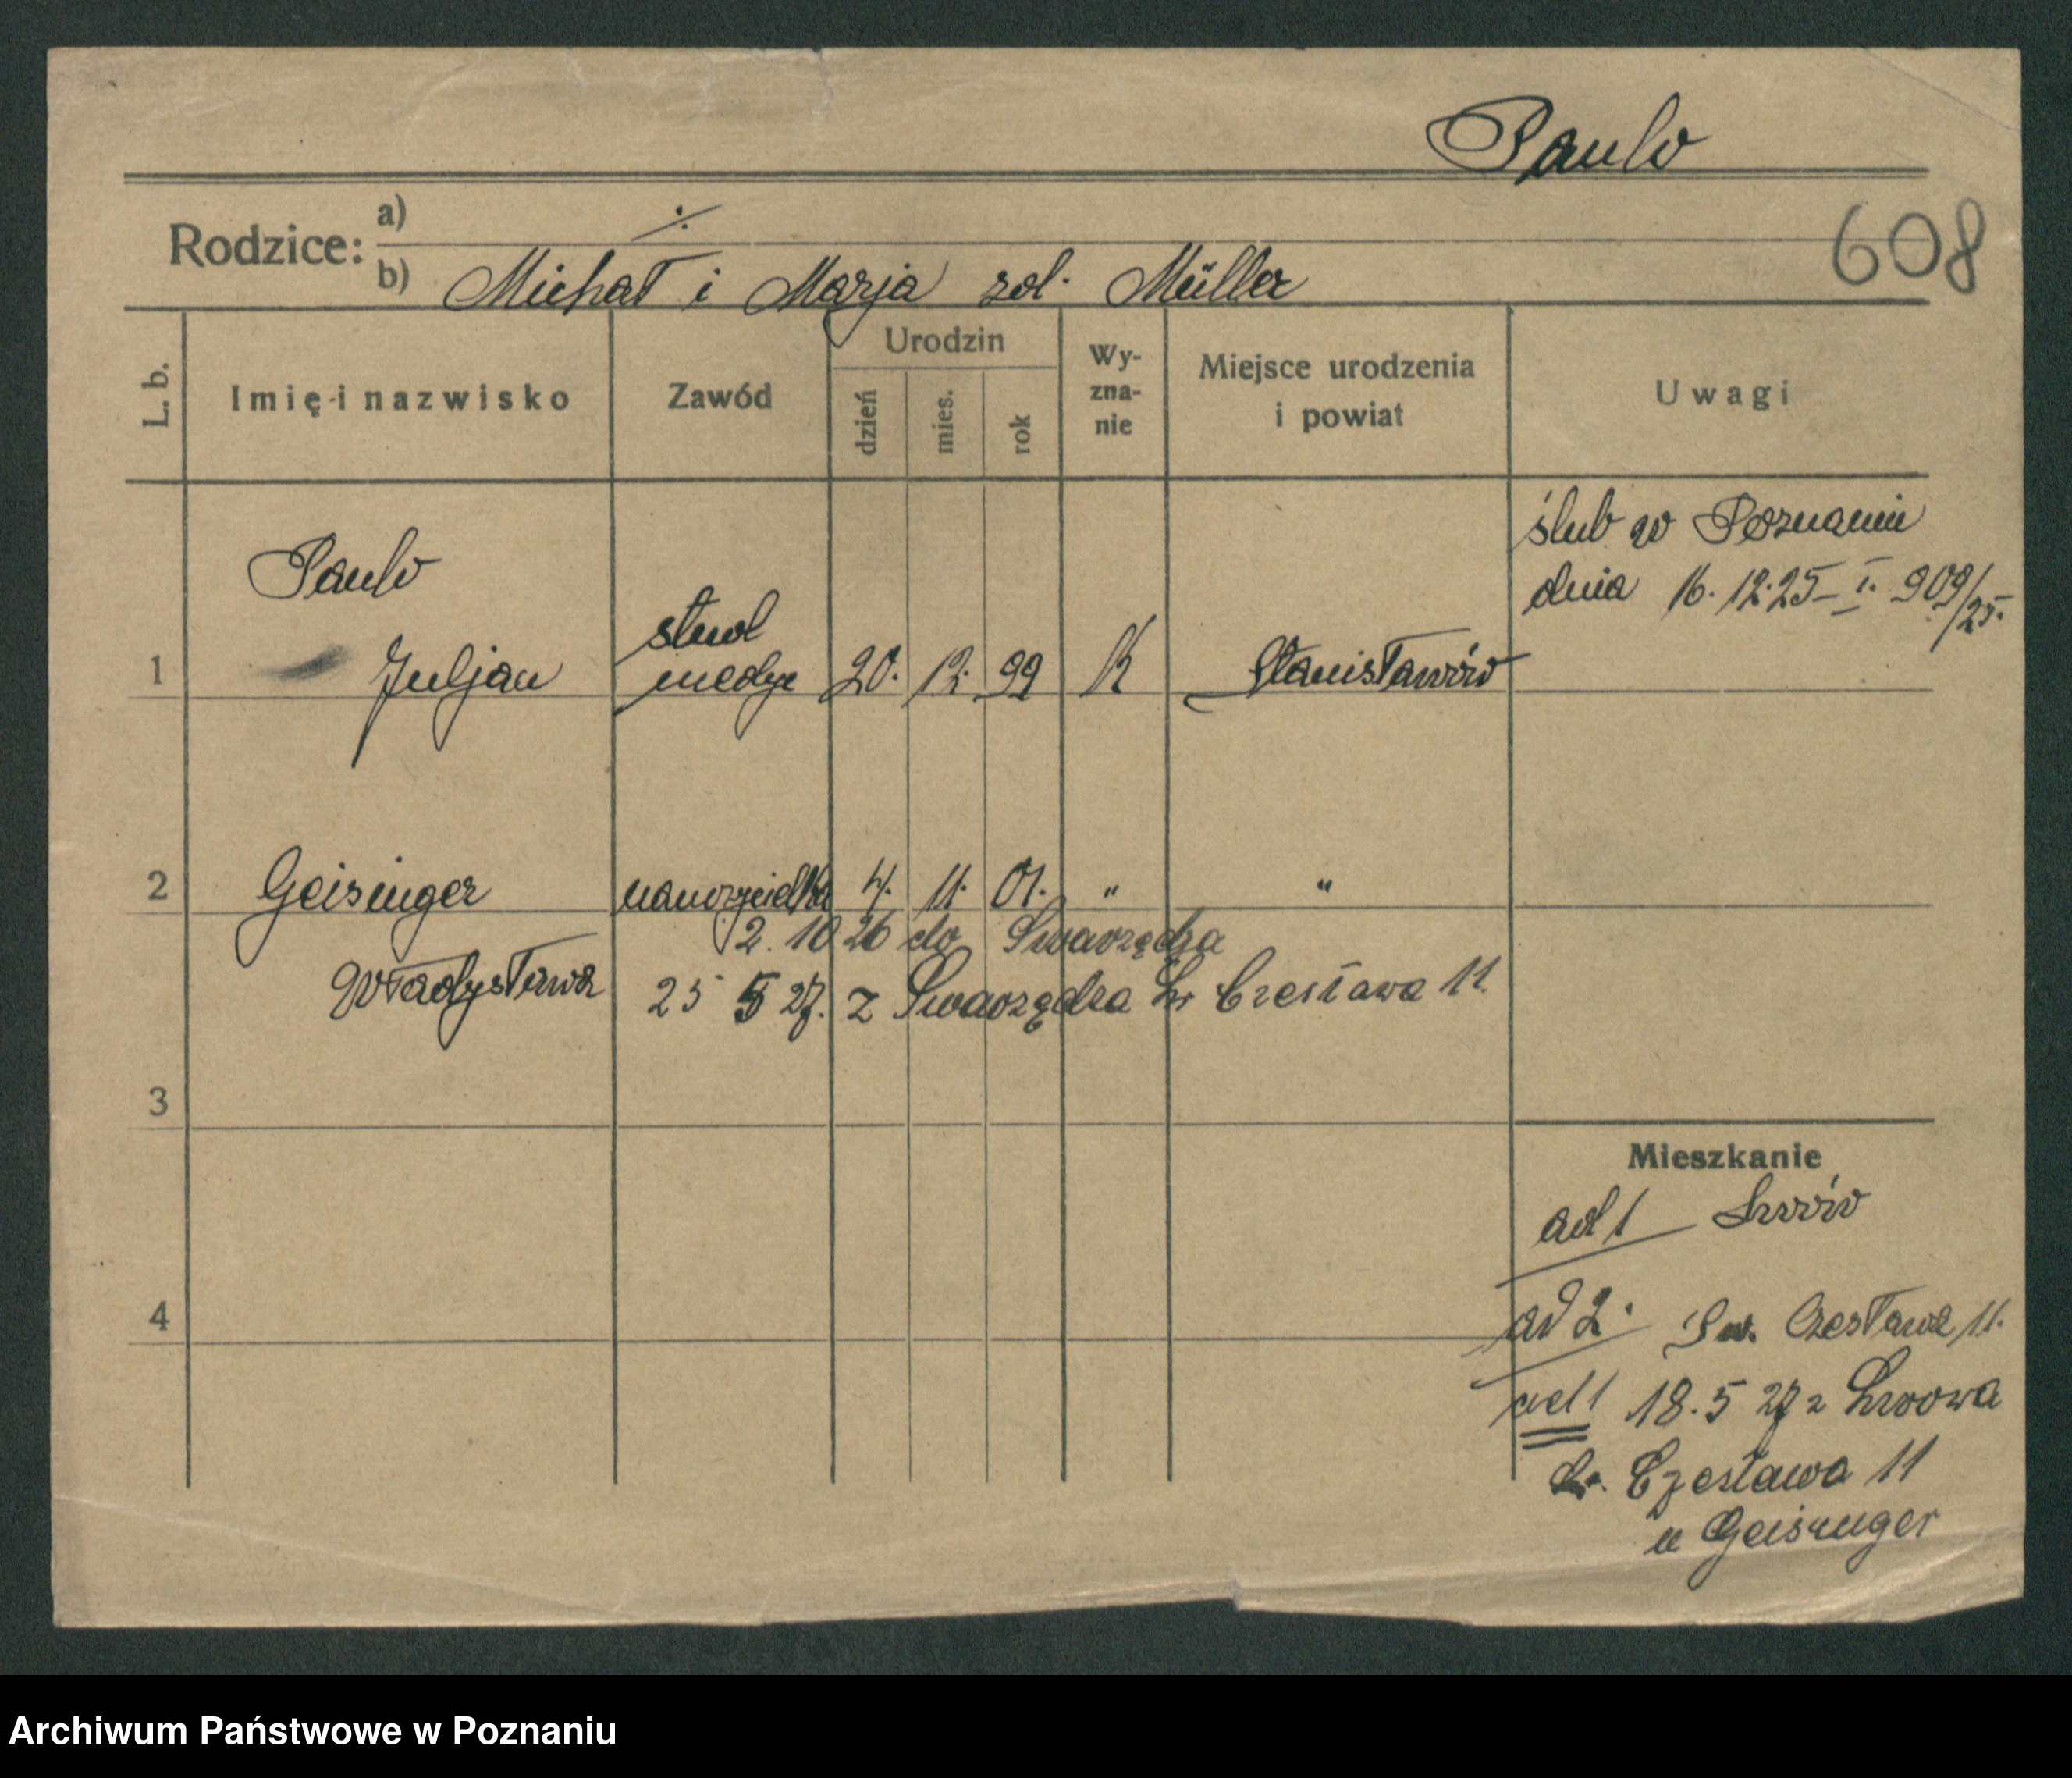 Paulo
608
Rodzice:
a) ·/·
b) Michał i Marja zd. Müller
L. b.
Imię i nazwisko
Zawód
Urodzin
dzień
mies.
rok
Wy-
zna-
nie
Miejsce urodzenia
i powiat
Uwagi
ślub w Poznaniu
dnia 16.12.25 – I. 909/25.
Paulo
stud
1 Juljan medyc 20. 12. 99 K Stanisławów
2 Geisinger nauczycielka 4. 11. 01. " "
2. 10 26 do Swarzędza
Władysława 25 5 27. z Swarzędza Czesława 11.
3
Mieszkanie
ad 1 Lwów
4
ad 2. Św. Czesława 11.
ad 1 18.5 27 z Lwowa
Czesława 11
u Geisinger
Archiwum Państwowe w Poznaniu